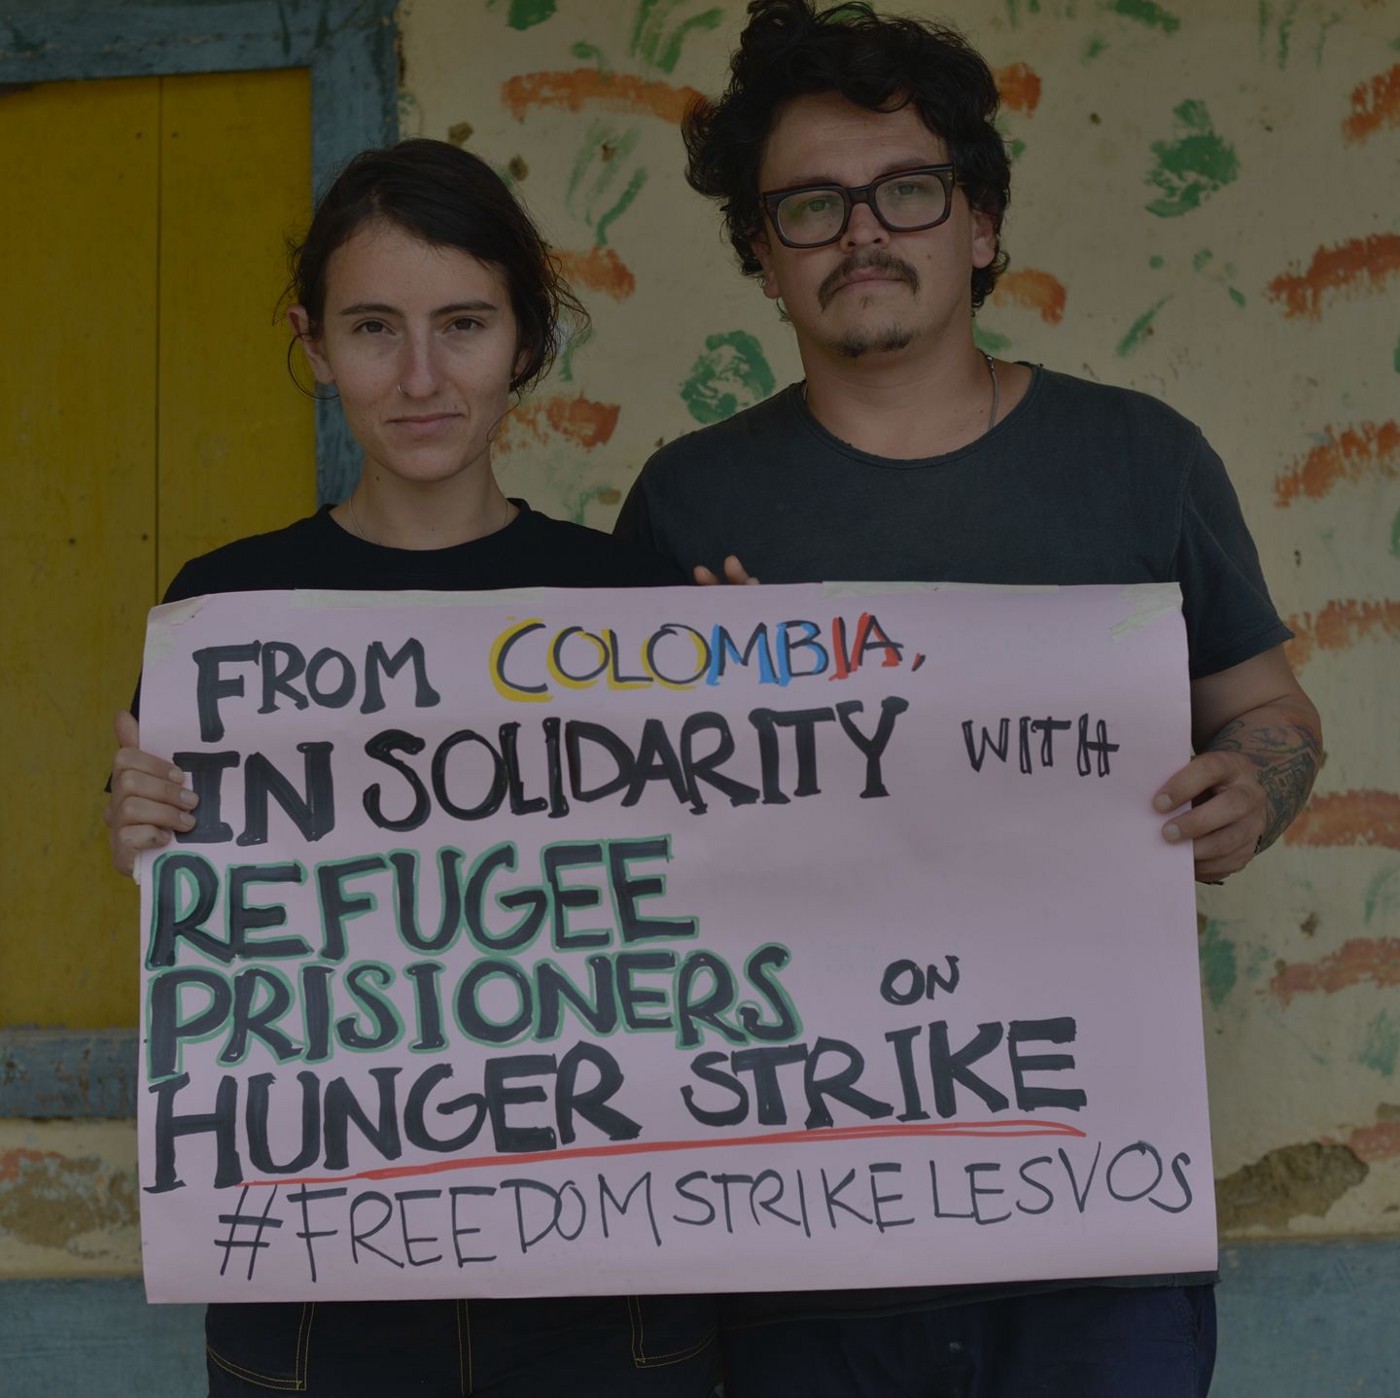 FROM COLOMBIA,
IN SOLIDARITY WITH
REFUGEE
PRISIONERS ON
HUNGER STRIKE
#FREEDOMSTRIKELESVOS